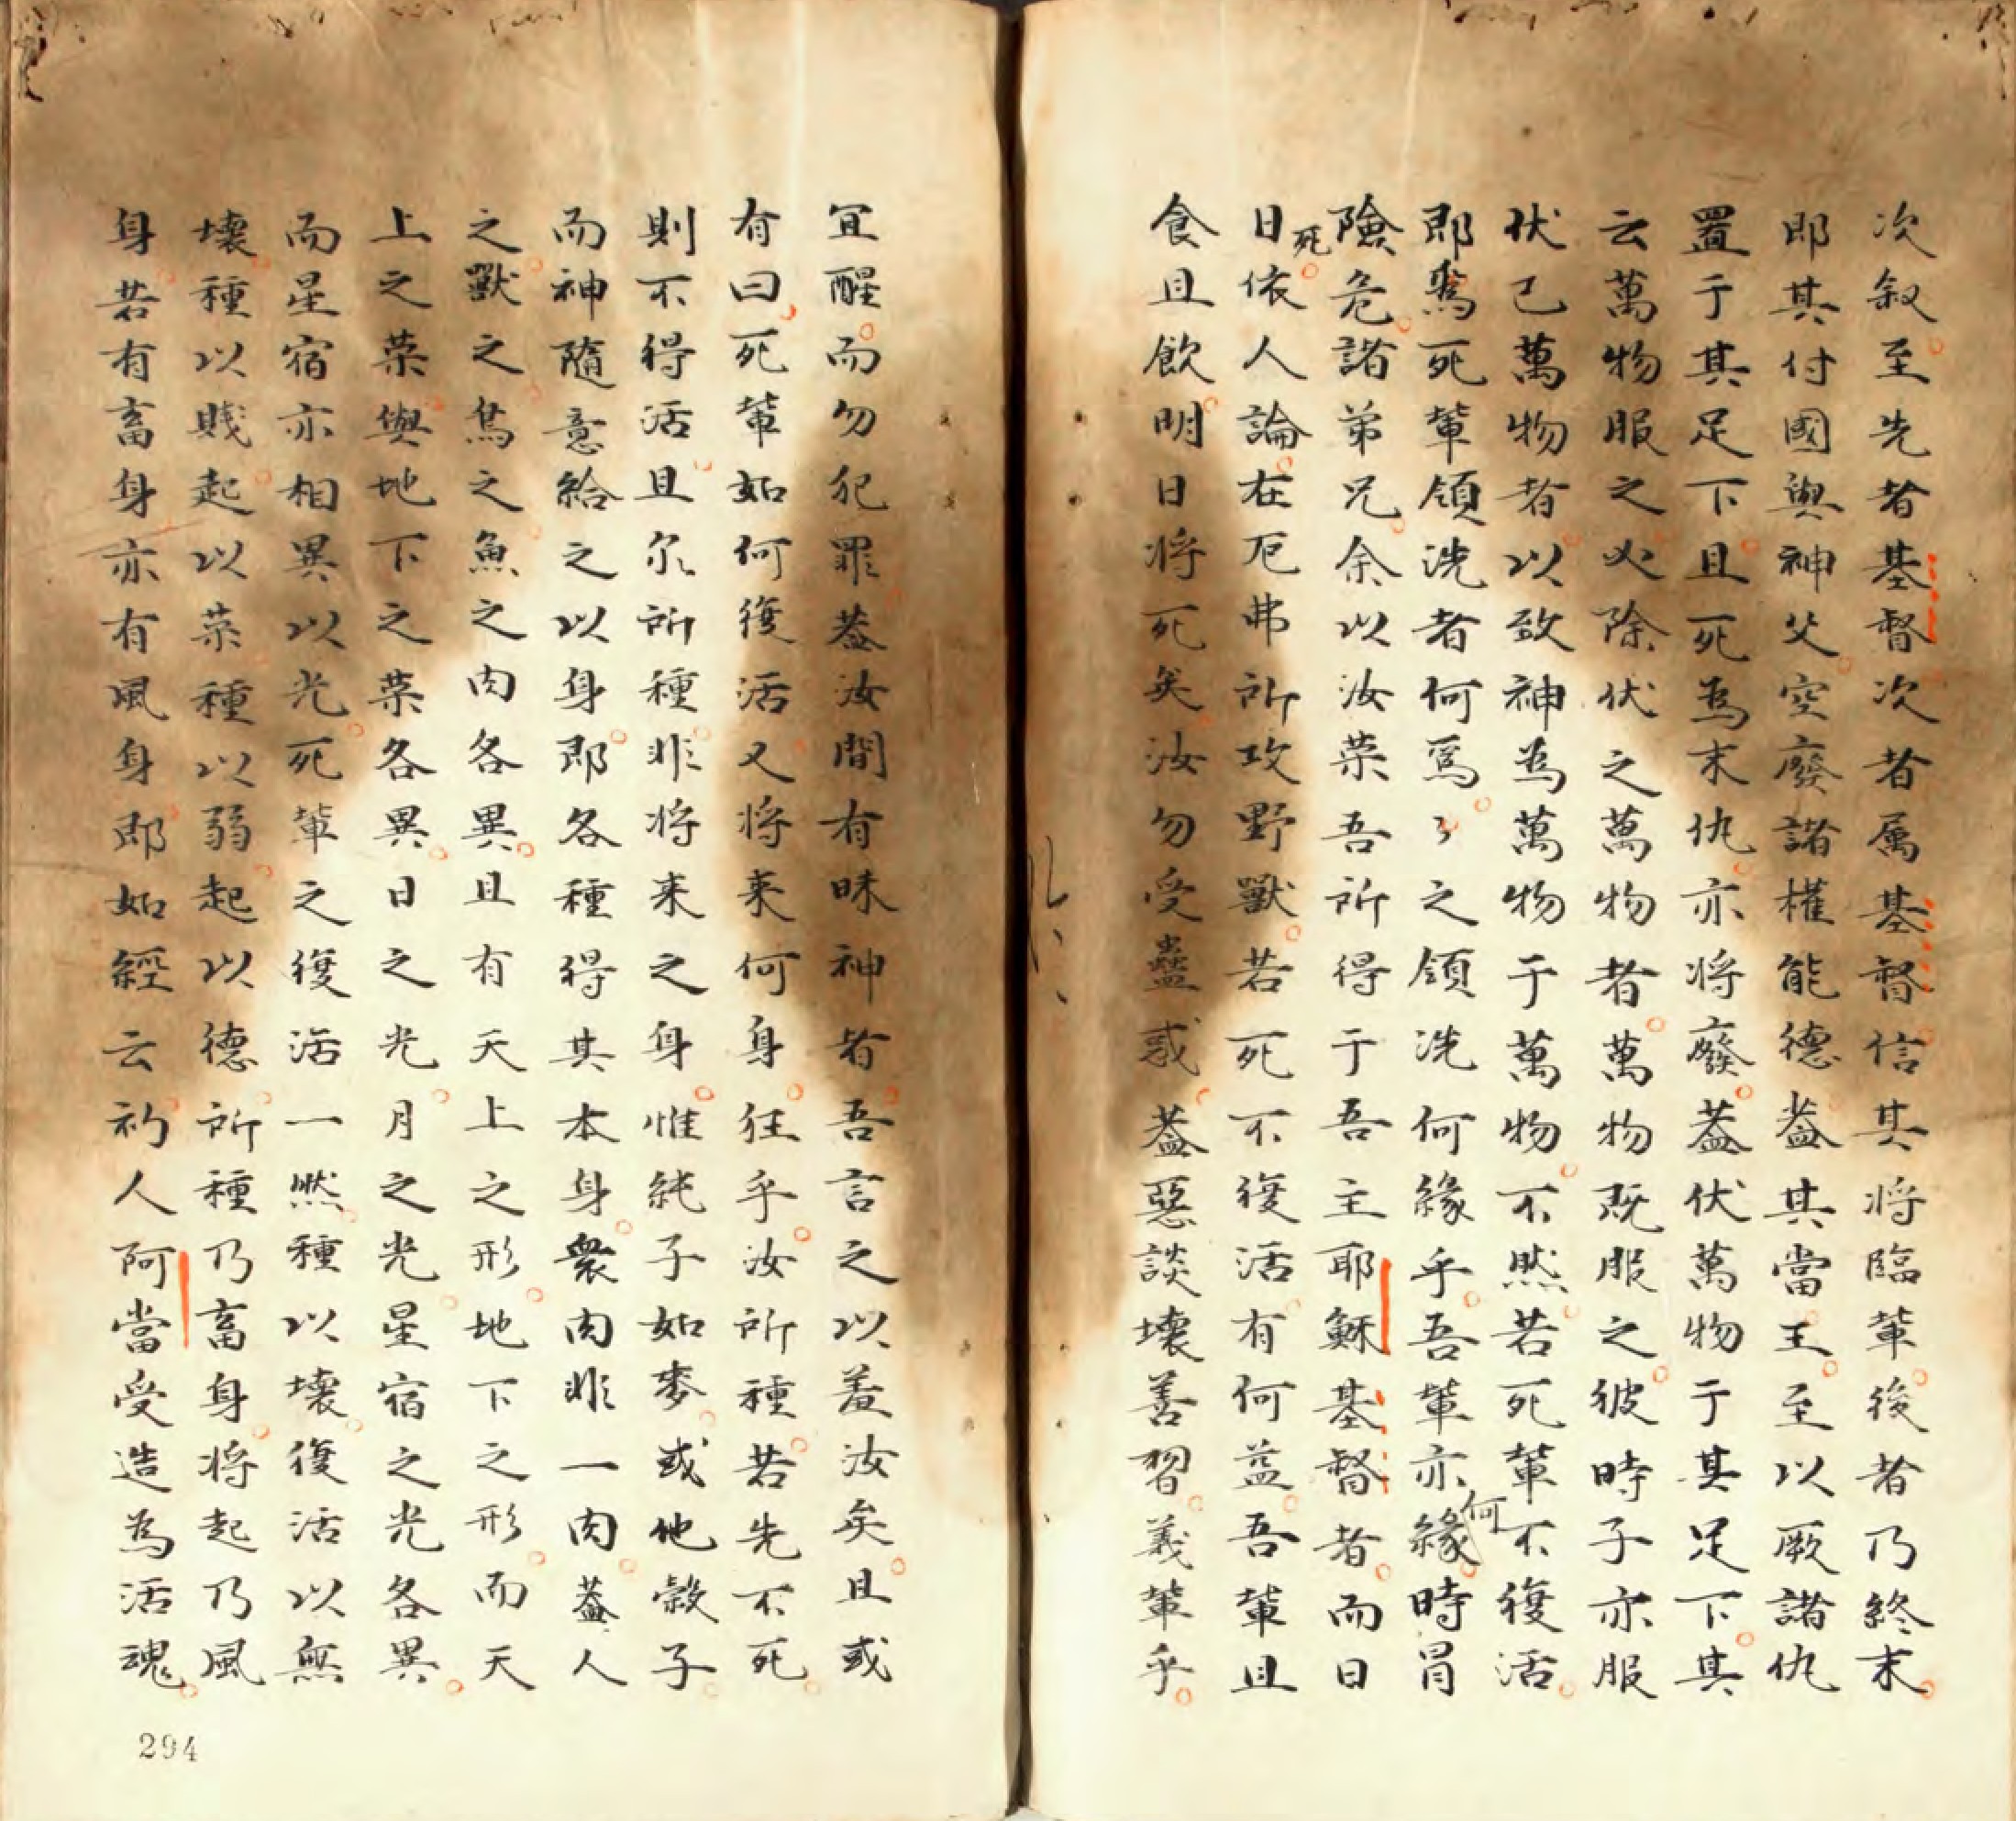 次叙至先者基督次者属基督信其将臨輩後者乃終末
即其付國與神父空廢諸權能德蓋其當王至以厥諸仇
置于其足下且死為末仇亦将廢蓋伏萬物于其足下其
云萬物服之必除伏之萬物者萬物既服之彼時子亦服
伏己萬物者以致神為萬物于萬物不然若死輩不復活
即爲死輩領洗者何爲〻之領洗何緣乎吾輩亦緣何時冐
險危諸弟兄余以汝荣吾所得于吾主耶穌基督者而日
日死依人論在厄弗所攻野獸若死不復活有何益吾輩且
食且飲明日将死矣汝勿受蠱惑蓋惡談壊善習義輩乎
宜醒而勿犯罪蓋汝間有昧神者吾言之以羞汝矣且或
有曰死輩如何復活又将来何身狂乎汝所種若先不死
則不得活且尔所種非将来之身惟純子如麥或他穀子
而神隨意給之以身即各種得其本身衆肉非一肉蓋人
之獸之鳥之魚之肉各異且有天上之形地下之形而天
上之荣與地下之荣各異日之光月之光星宿之光各異
而星宿亦相異以光死輩之復活一然種以壊復活以無
壊種以賤起以荣種以弱起以德所種乃畜身将起乃風
身若有畜身亦有風身即如經云初人阿當受造為活魂
294